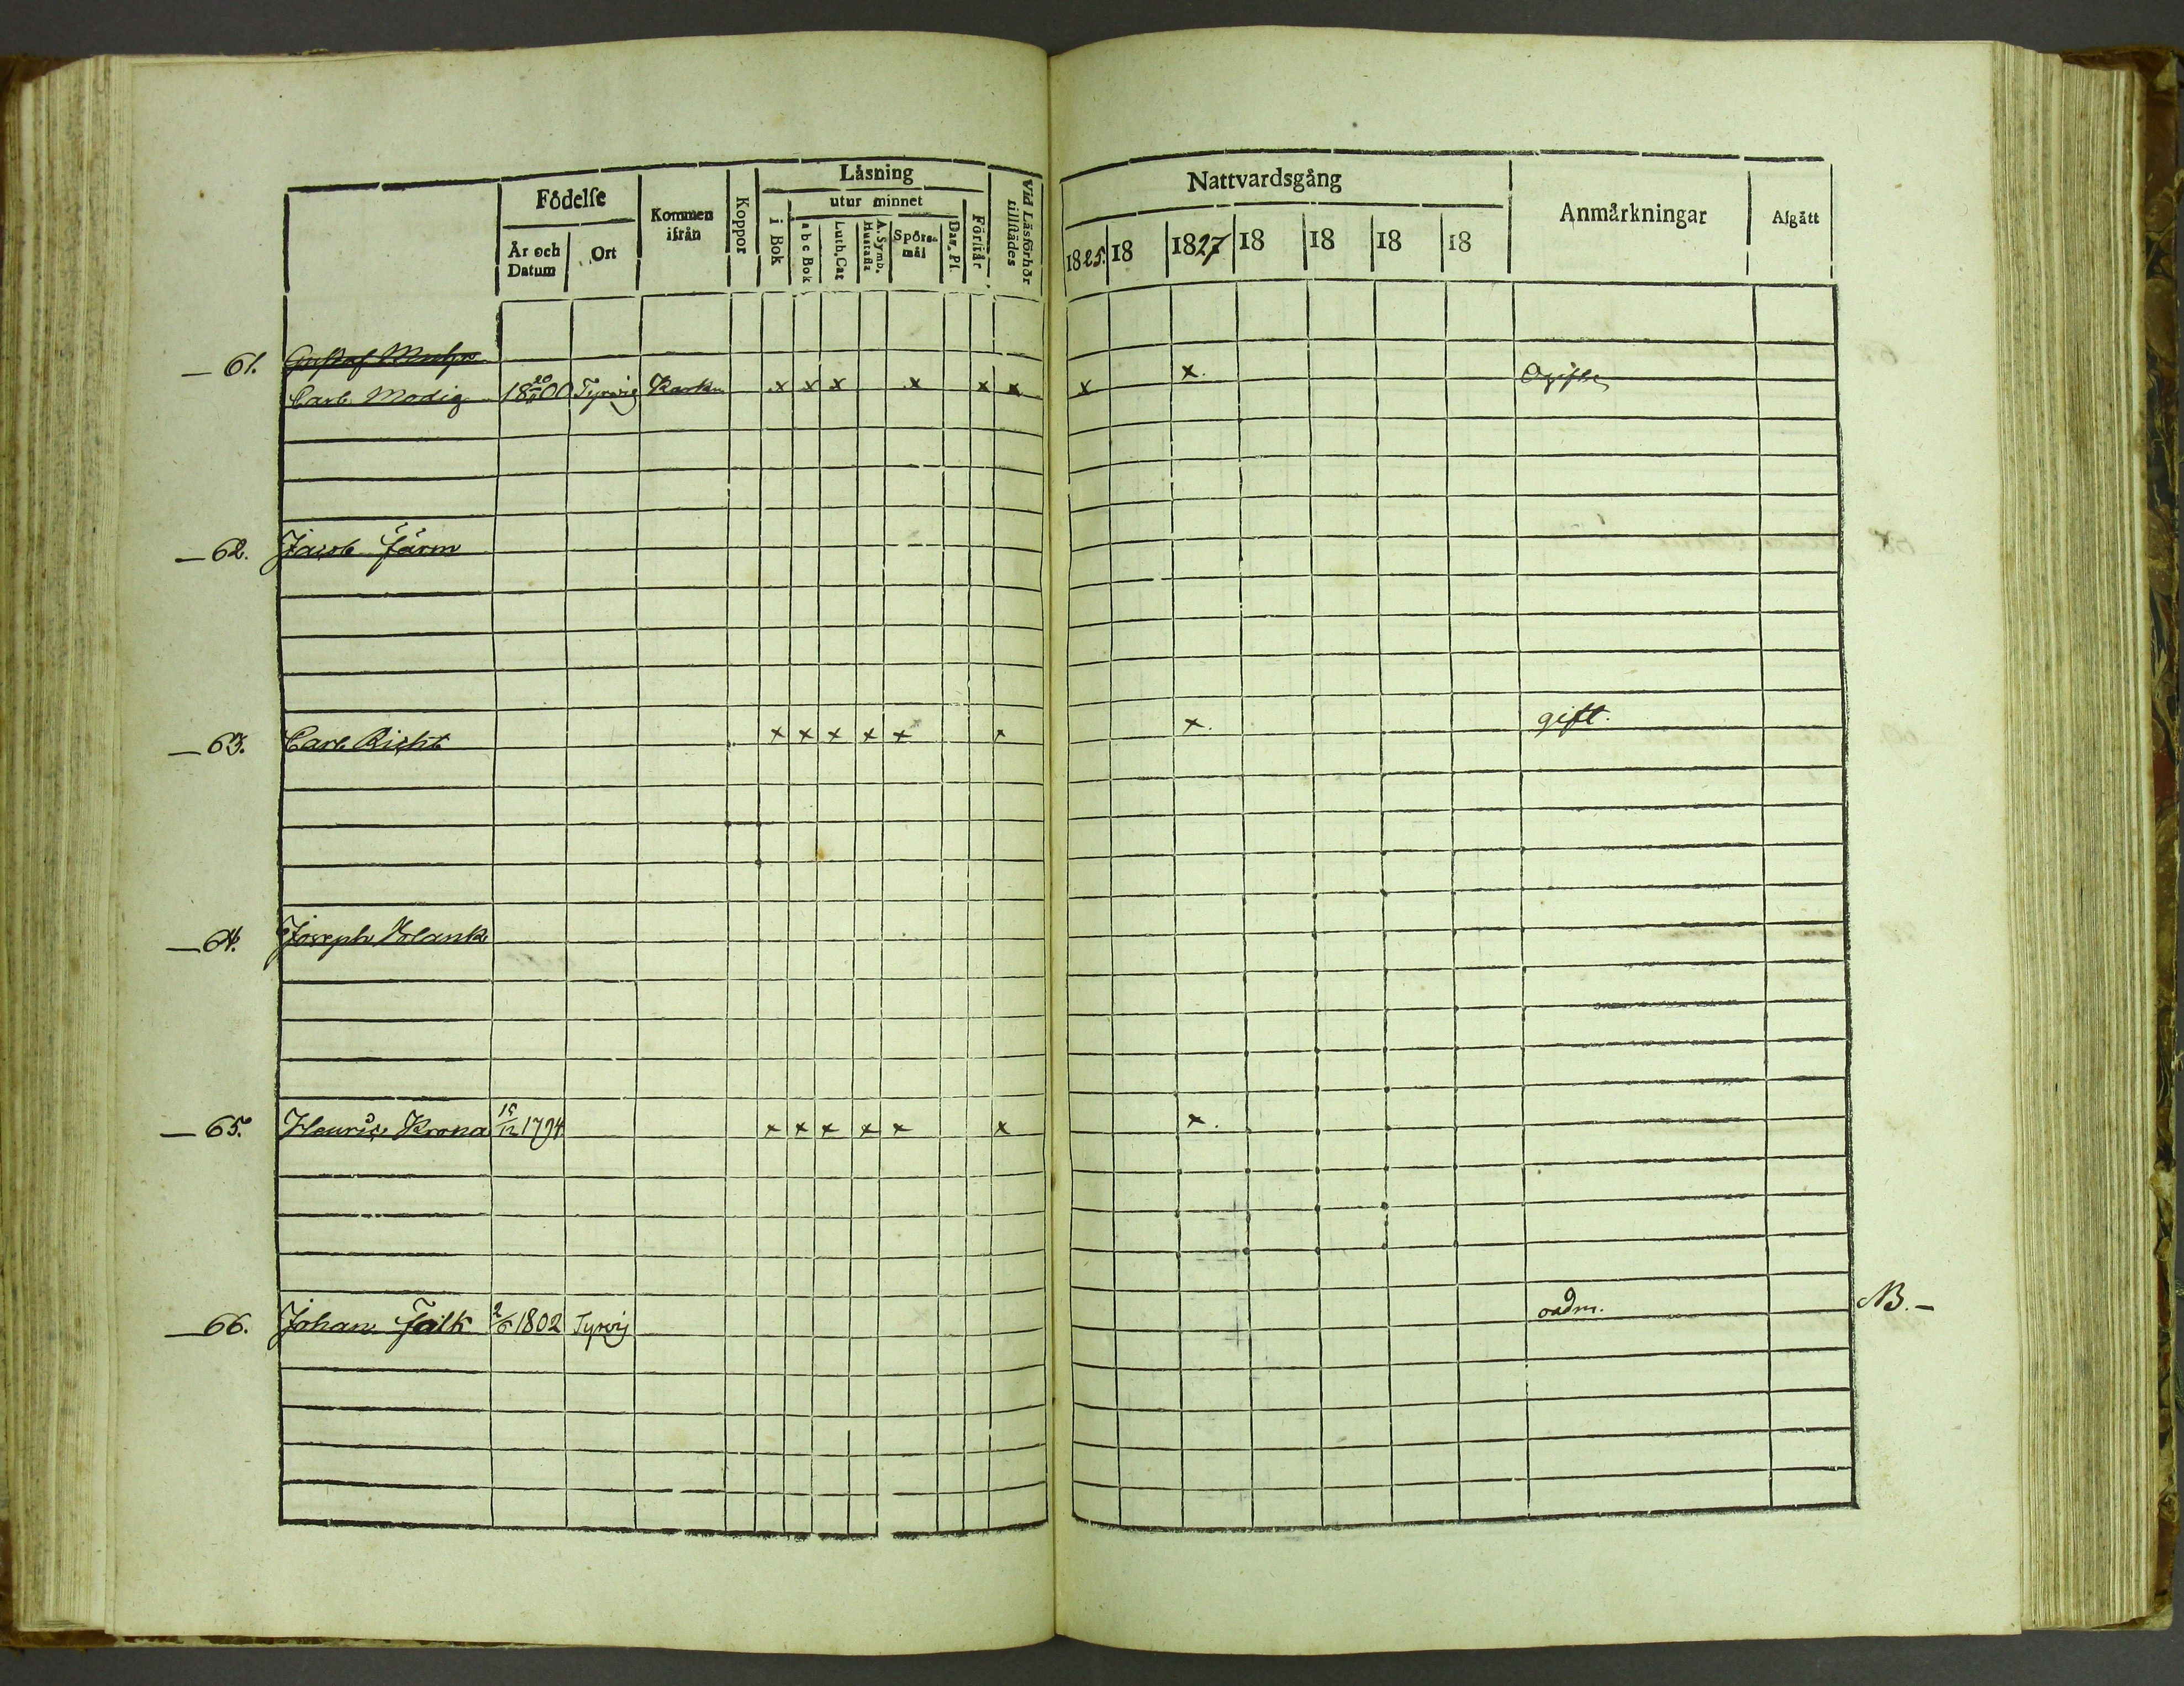 Födelse
År och Datum
Ort
Kommen ifrån
Koppor
Läsning
utur minnet
i Bok
abc Bok
Luth. Cat
A. Symb. Hustafla
Spörsmål
Dav. Ps.
Förstår
Vid Läsförhör tillstädes
Nattvardsgång
1825. 18 1827 18 18 18 18
Anmärkningar
Afgått
61. Gustaf
Carl Modig 1800 Tyrvis x x x x x x x x. Ogift
62. Jacob Järm
63. Carl Richt x x x x x x x. gift.
64. Joseph Blank
65. Henric Krona 15/12 1794 x x x x x x x.
66. Johan Falk 2/6 1802 Tyrvis oadm. NB.